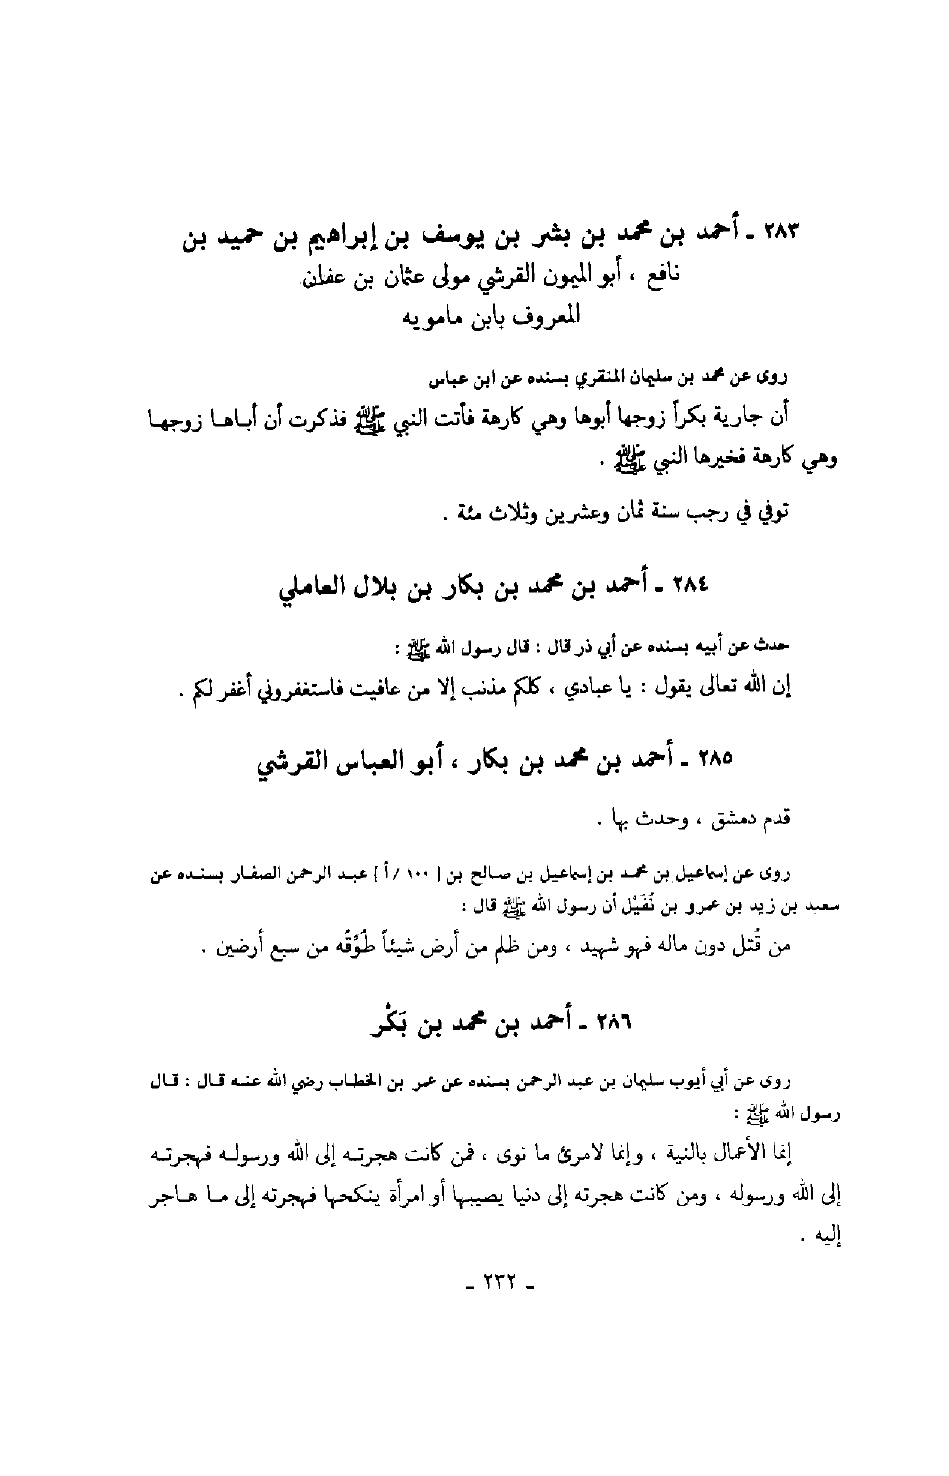 ٢٨٣ ـ أحمد بن محمد بن بشر بن يوسف بن إبراهيم بن حميد بن
نافع ، أبو الميمون القرشي مولى عثمان بن عفان
المعروف بابن مامويه
روى عن محمد بن سليمان المنقري بسنده عن ابن عباس
أن جارية بكراً زوجها أبوها وهي كارهة فأتت النبي ﷺ فذكرت أن أباها زوجها
وهي كارهة فخيرها النبي ﷺ .
توفي في رجب سنة ثمان وعشرين وثلاث مئة .
٢٨٤ ـ أحمد بن محمد بن بكار بن بلال العاملي
حدث عن أبيه بسنده عن أبي ذر قال : قال رسول الله ﷺ :
إن الله تعالى يقول : يا عبادي ، كلكم مذنب إلا من عافيت فاستغفروني أغفر لكم .
٢٨٥ ـ أحمد بن محمد بن بكار ، أبو العباس القرشي
قدم دمشق ، وحدث بها .
روى عن إسماعيل بن محمد بن إسماعيل بن صالح بن [ ١٠٠ / أ ] عبد الرحمن الصفار بسنده عن
سعيد بن زيد بن عمرو بن نُفَيْل أن رسول الله ﷺ قال :
من قُتل دون ماله فهو شهيد ، ومن ظلم من أرض شيئاً طُوِّقُه من سبع أرضين .
٢٨٦ ـ أحمد بن محمد بن بَكْر
روى عن أبي أيوب سليمان بن عبد الرحمن بسنده عن عمر بن الخطاب رضي الله عنه قال : قال
رسول الله ﷺ :
إنما الأعمال بالنية ، وإنما لامرئ ما نوى ، فمن كانت هجرته إلى الله ورسوله فهجرته
إلى الله ورسوله ، ومن كانت هجرته إلى دنيا يصيبها أو امرأة ينكحها فهجرته إلى ما هاجر
إليه .
ـ ٢٣٢ ـ